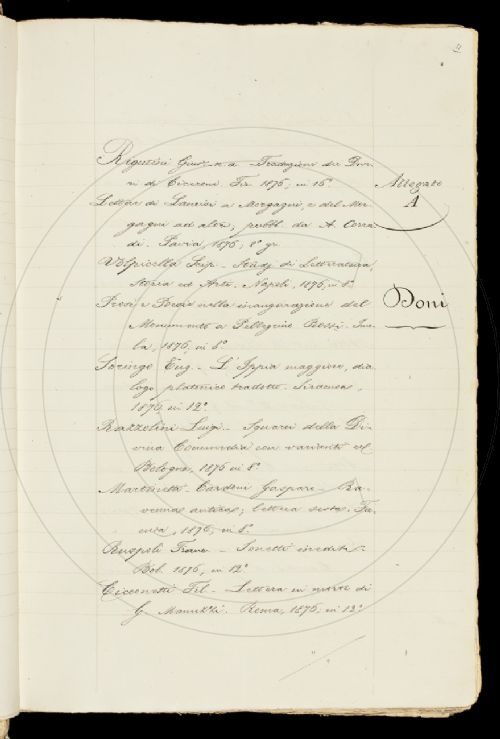 4
Allegato
A
Doni
Rigutini Gius. - Traduzione dei Dove-
ri di Cicerone. Fir. 1876, in 16.°
Lettere di Lancisi a Morgagni, e del Mor-
gagni ad altri, pubb. da A. Corra-
di. Pavia, 1876, 8° gr.
Volpicella Scip. - Studj di Letteratura,
Storia ed Arte. Napoli, 1876, in 8.°
Prose e Poesie nella inaugurazione del
Monumento a Pellegrino Rossi.
1876, in 8.°
Eug. - L'Ippia maggiore, dia-
logo platonico tradotto. Siracusa,
1876, in 12.°
Razzolini Luigi - Squarci della Di-
vina Commedia con varianti
Bologna, 1876 in 8.°
Martinetti-Cardoni Gaspare - Ra-
venna antica; lettera sesta. Fa-
enza, 1876, in 8.°
Ruspoli Franc. - Sonetti inediti.
Bol. 1876, in 12.°
Cicconetti Fil. - Lettera in morte di
G. Manuzzi. Roma, 1876, in 12.°